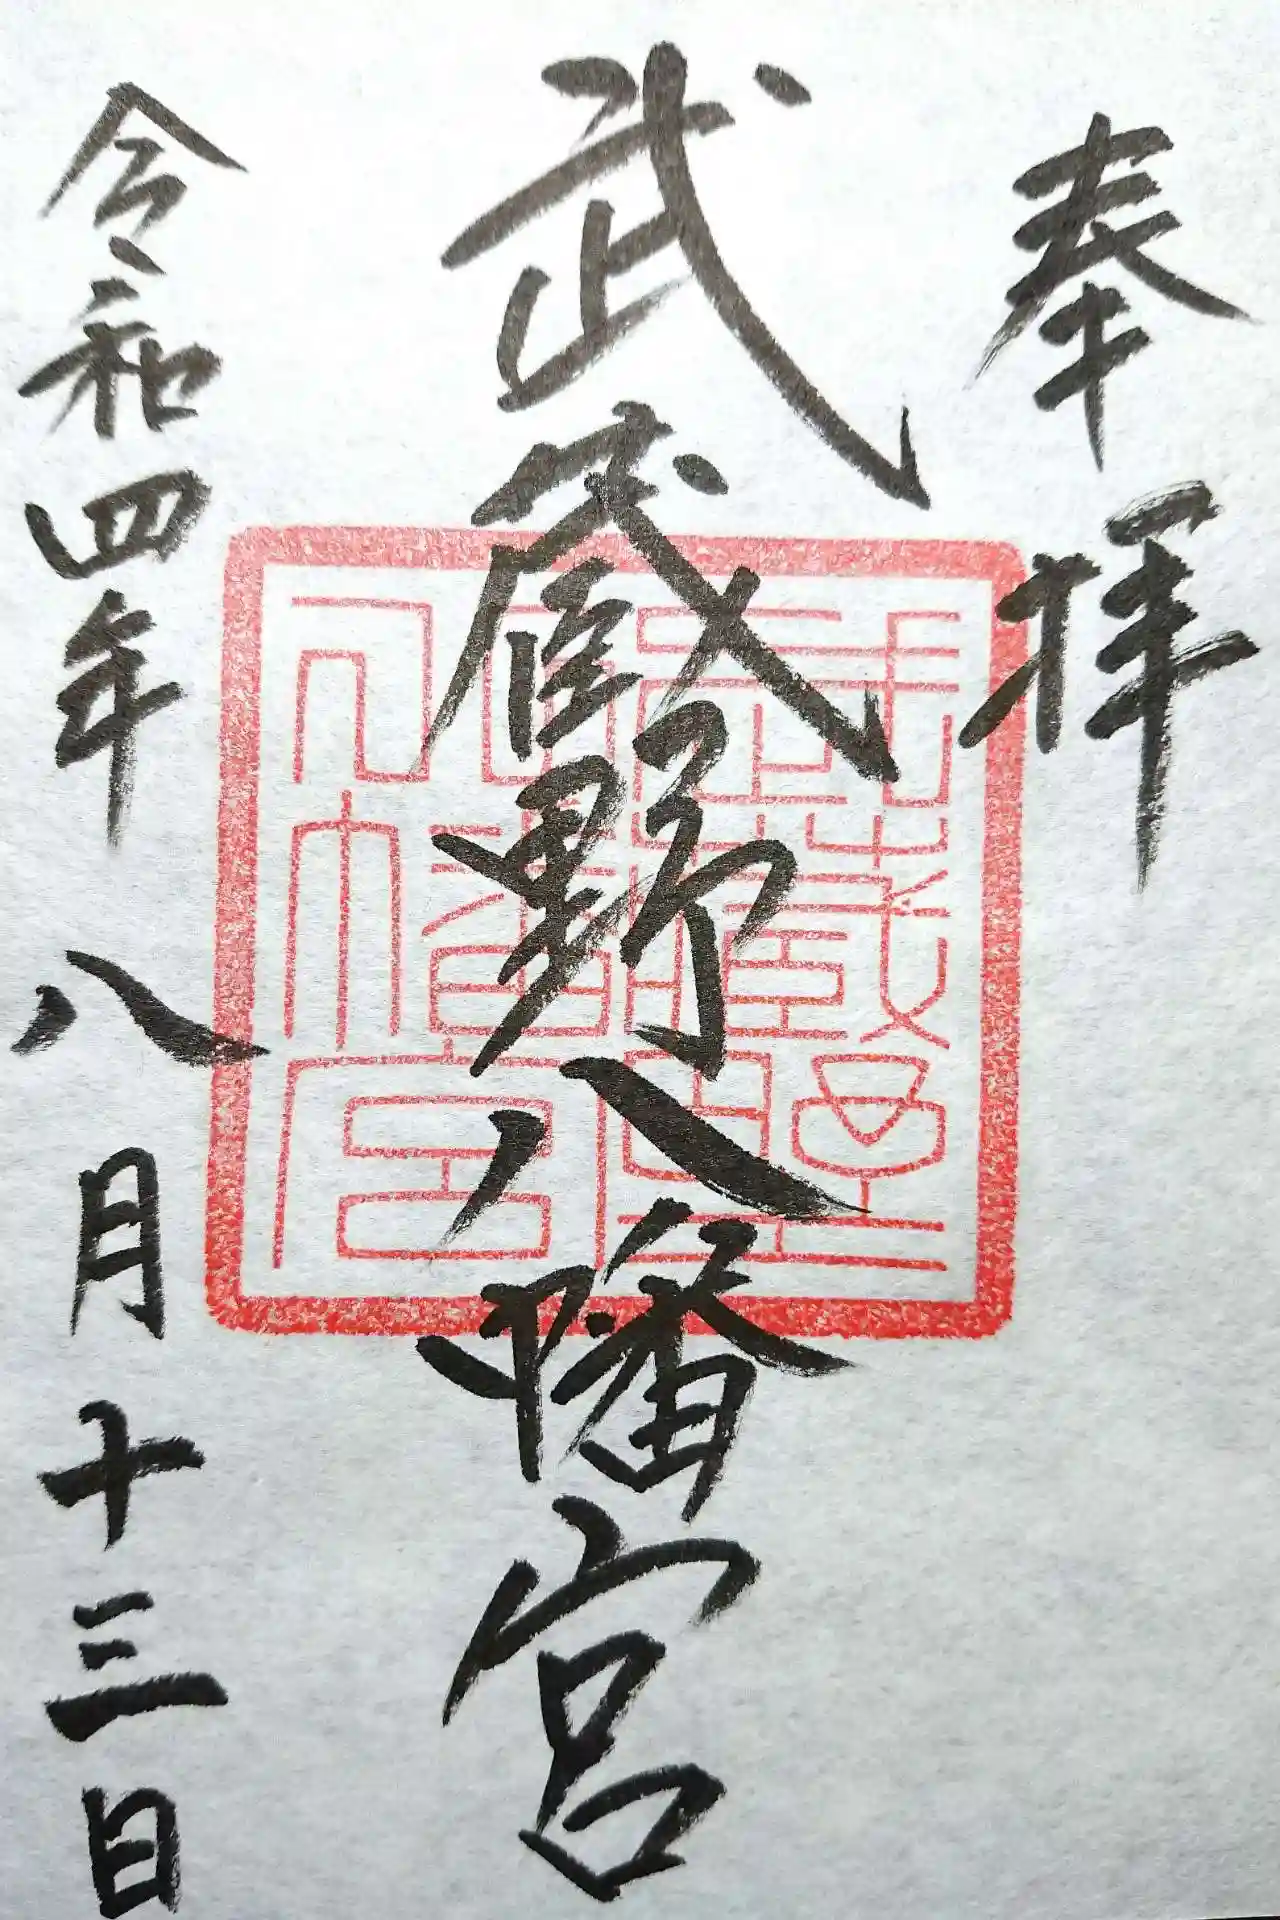 奉拝
武蔵野八幡宮
令和四年八月十三日
武蔵野
八幡宮